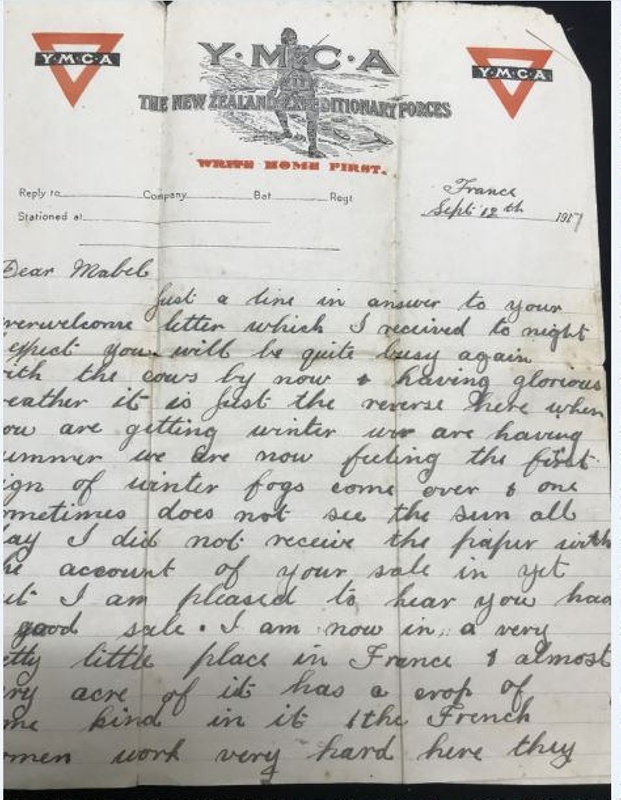 Y·M·C·A
Y·M·C·A
Y·M·C·A
THE NEW ZEALAND EXPEDITIONARY FORCES
WRITE HOME FIRST.
Reply to Company Bat Regt
Stationed at
France
Sept 12th 1917
Dear Mabel
Just a line in answer to your
verwelcome letter which I received to night
expect you will be quite busy again
ith the cows by now & having glorious
eather it is Just the reverse here when
ou are getting winter we are having
ummer we are now feeling the first
ign of winter fogs come over & one
ometimes does not see the sun all
ay I did not receive the paper with
he account of your sale in yet
ut I am pleased to hear you had
good sale. I am now in a very
etty little place in France & almost
ery acre of it has a crop of
me kind in it & the French
omen work very hard here they